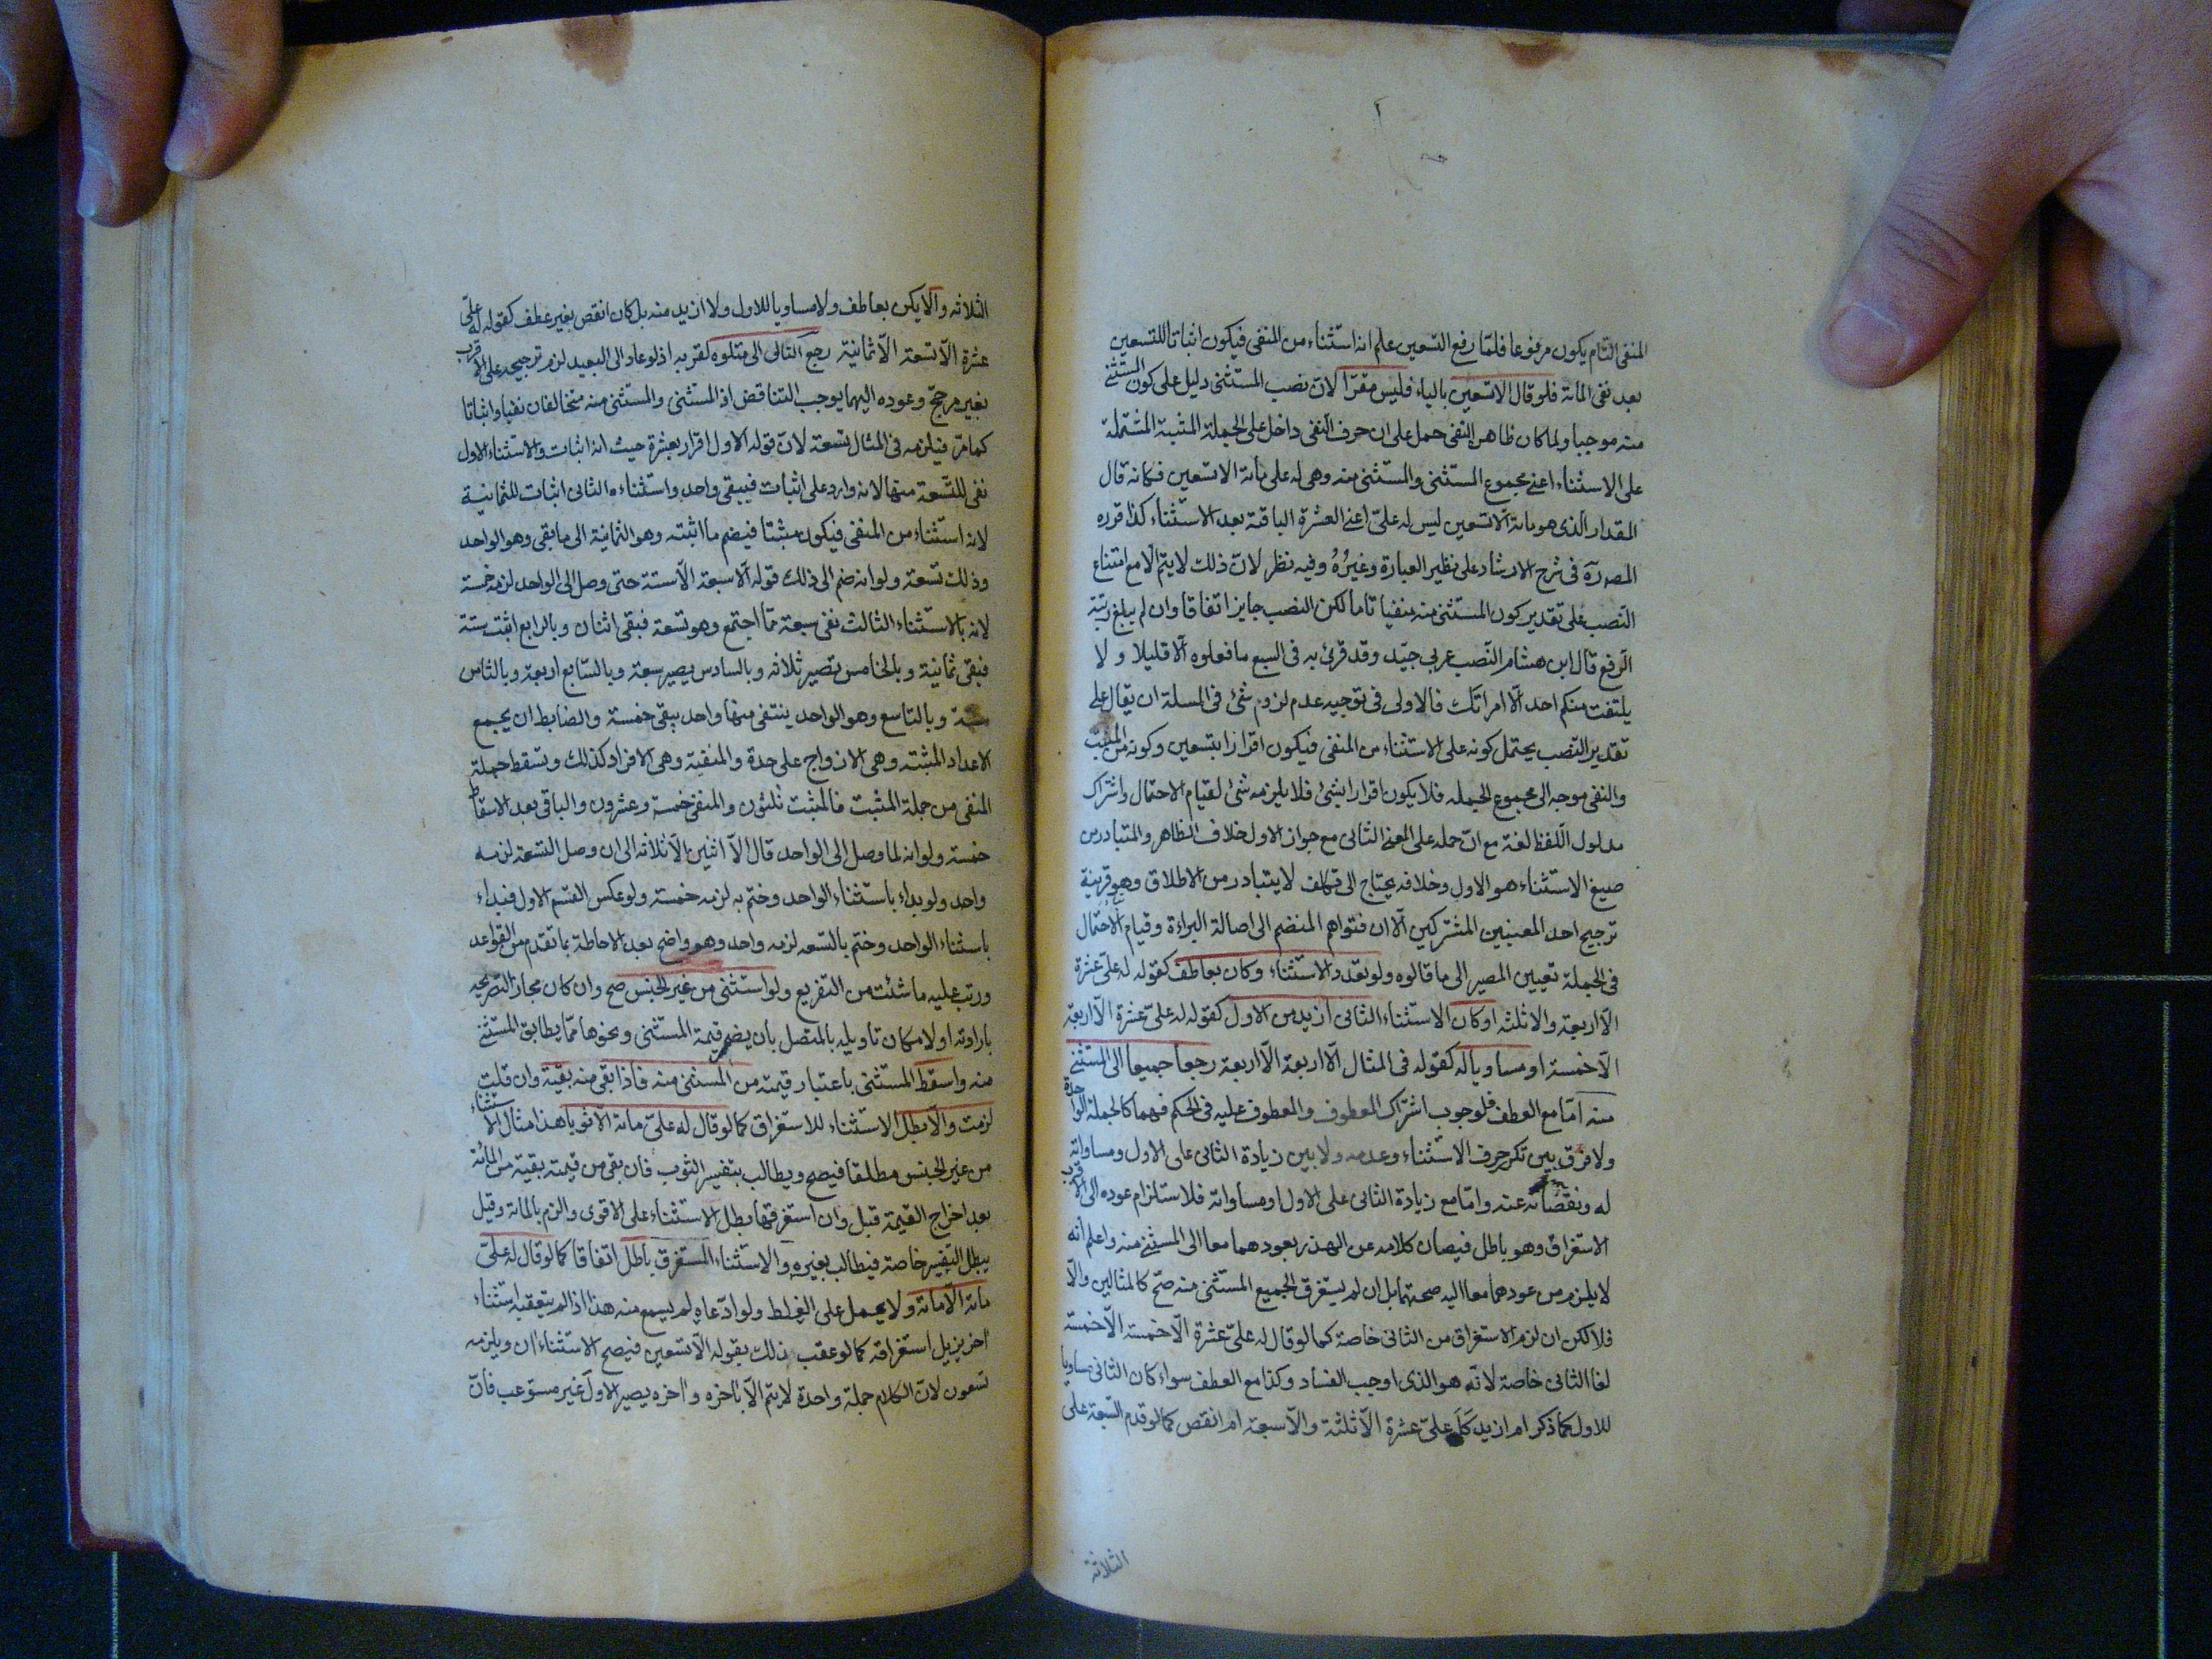 المنفى التام يكون مرفوعا فلما رفع التسعين علم انه استثناء من المنفى فيكون اثباتا للتسعين
بعد نفى المائة فلو قال الا تسعين بالياء فليس مقرا لان نصب المستثنى دليل على كون المستثنى
منه موجبا ولما كان ظاهره النفى حمل على ان حرف النفى داخل على الجملة المثبتة المشتملة
على الاستثناء اعنى مجموع المستثنى والمستثنى منه وهى له على مائة الا تسعين فكانه قال
المقدار الذى هو مائة الا تسعين ليس له على اعنى العشرة الباقية بعد الاستثناء كذا قرره
المصره فى شرح الارشاد على نظير العبارة وغيره وفيه نظر لان ذلك لا يتم الا مع امتناع
النصب على تقدير كون المستثنى منه منفيا تاما لكن النصب جايز اتفاقا وان لم يبلغ رتبة
الرفع قال ابن هشام النصب عربى جيد وقد قرئ به فى السبع ما فعلوه الا قليلا ولا
يلتفت منكم احد الا امراتك فالاولى فى توجيه عدم لزوم شئ فى المسلة ان يقال على
تقدير النصب يحتمل كونه على الاستثناء من المنفى فيكون اقرارا بتسعين وكونه من المثبت
والنفى موجه الى مجموع الجمله فلا يكون اقرارا بشئ فلا يلزمه شئ لقيام الاحتمال واشتراك
مدلول اللفظ لغة مع ان حمله على المعنى الثانى مع جواز الاول خلاف الظاهر والمتبادر من
صيغ الاستثناء هو الاول وخلافه يحتاج الى تكلف لا يتبادر من الاطلاق وهو قرينة
ترجيح احد المعنيين المشتركين الا ان فتواهم المنضم الى اصالة البراءة وقيام الاحتمال
فى الجملة تعيين المصير الى ما قالوه ولو تعدد الاستثناء وكان بعاطف كقوله له على عشرة
الا اربعة والا ثلثه او كان الاستثناء الثانى ازيد من الاول كقوله له على عشرة الا اربعة
الا خمسة او مساويا له كقوله فى المثال الا اربعة الا اربعة رجعا جميعا الى المستثنى
منه اما مع العطف فلوجوب اشتراك المعطوف والمعطوف عليه فى الحكم فهما كالجملة الواحدة
ولا فرق بين تكرر حرف الاستثناء وعدمه ولا بين زيادة الثانى على الاول ومساواته
له ونقصانه عنه واما مع زيادة الثانى على الاول او مساواته فلاستلزام عوده الى الاقرب
الاستغراق وهو باطل فيصان كلامه عن الهذر بعودهما معا الى المستثنى منه واعلم انه
لا يلزم من عودهما معا اليه صحتهما بل ان لم يستغرق الجميع المستثنى منه صح كالمثالين والا
فلا لكن ان لزم الاستغراق من الثانى خاصة كما لو قال له على عشرة الا خمسة الا خمسة
لغا الثانى خاصة لانه هو الذى اوجب الفساد وكذا مع العطف سواء كان الثانى مساويا
للاول كما ذكر ام ازيد كله على عشرة الا ثلثة والا سبعة ام انقص كما لو قدم السبعة على
الثلاثة
الثلاثه والا يكن بعاطف ولا مساويا للاول ولا ازيد منه بل كان انقص بغير عطف كقوله له على
عشرة الا تسعة الا ثمانية رجع التالى الى متلوه لقربه اذ لو عاد الى البعيد لزم ترجيحه على الاقرب
بغير مرجح وعوده اليهما يوجب التناقض اذ المستثنى والمستثنى منه متخالفان نفيا واثباتا
كما مر فيلزمه فى المثال تسعة لان قوله الاول اقرار بعشرة حيث انه اثبات والاستثناء الاول
نفى للتسعة منها لانه وارد على اثبات فيبقى واحد واستثناءه الثانى اثبات للثمانية
لانه استثناء من المنفى فيكون مثبتا فيضم ما اثبته وهو الثمانية الى ما بقى وهو الواحد
وذلك تسعة ولو انه ضم الى ذلك قوله الا سبعة الا ستة حتى وصل الى الواحد لزمه خمسة
لانه بالاستثناء الثالث نفى سبعة مما اجتمع وهو تسعة فبقى اثنان وبالرابع اثبت ستة
فبقى ثمانية وبالخامس تصير ثلاثه وبالسادس يصير سبعة وبالسابع اربعة وبالثامن
ستة وبالتاسع وهو الواحد ينتفى منها واحد يبقى خمسة والضابط ان يجمع
الاعداد المثبته وهى الازواج على حدة والمنفية وهى الافراد كذلك وتسقط جملة
المنفى من جملة المثبت فالمثبت ثلثون والمنفى خمسة وعشرون والباقى بعد الاسقاط
خمسة ولو انه لما وصل الى الواحد قال الا اثنين الا ثلاثه الى ان وصل التسعة لزمه
واحد ولو بداء باستثناء الواحد وختم به لزمه خمسة ولو عكس القسم الاول فبداء
باستثناء الواحد وختم بالتسعه لزمه واحد وهو واضح بعد الاحاطة بما تقدم من القواعد
ورتب عليه ما شئت من التفريع ولو استثنى من غير الجنس صح وان كان مجازا لتصريحه
بارادته او لامكان تاويله بالمتصل بان يضمر قيمة المستثنى ونحوها مما يطابق المستثنى
منه واسقط المستثنى باعتبار قيمته من المستثنى منه فاذا بقى منه بقية وان قلت
لزمت والا بطل الاستثناء للاستغراق كما لو قال له على مائة الا ثوبا هذا مثال الاستثناء
من غير الجنس مطلقا فيصح ويطالب بتفسير الثوب فان بقى من قيمته بقية من المائة
بعد اخراج القيمة قبل وان استغرقتها بطل الاستثناء على الاقوى والزم بالمائة وقيل
يبطل التفسير خاصة فيطالب بغيره والاستثناء المستغرق باطل اتفاقا كما لو قال له على
مائة الا مائة ولا يحمل على الغلط ولو ادعاه لم يسمع منه هذا اذا لم يتعقبه استثناء
اخر يزيل استغراقه كما لو عقب ذلك بقوله الا تسعين فيصح الاستثناءان ويلزمه
تسعون لان الكلام جملة واحدة لا يتم الا باخره واخره يصير الاول غير مستوعب فان